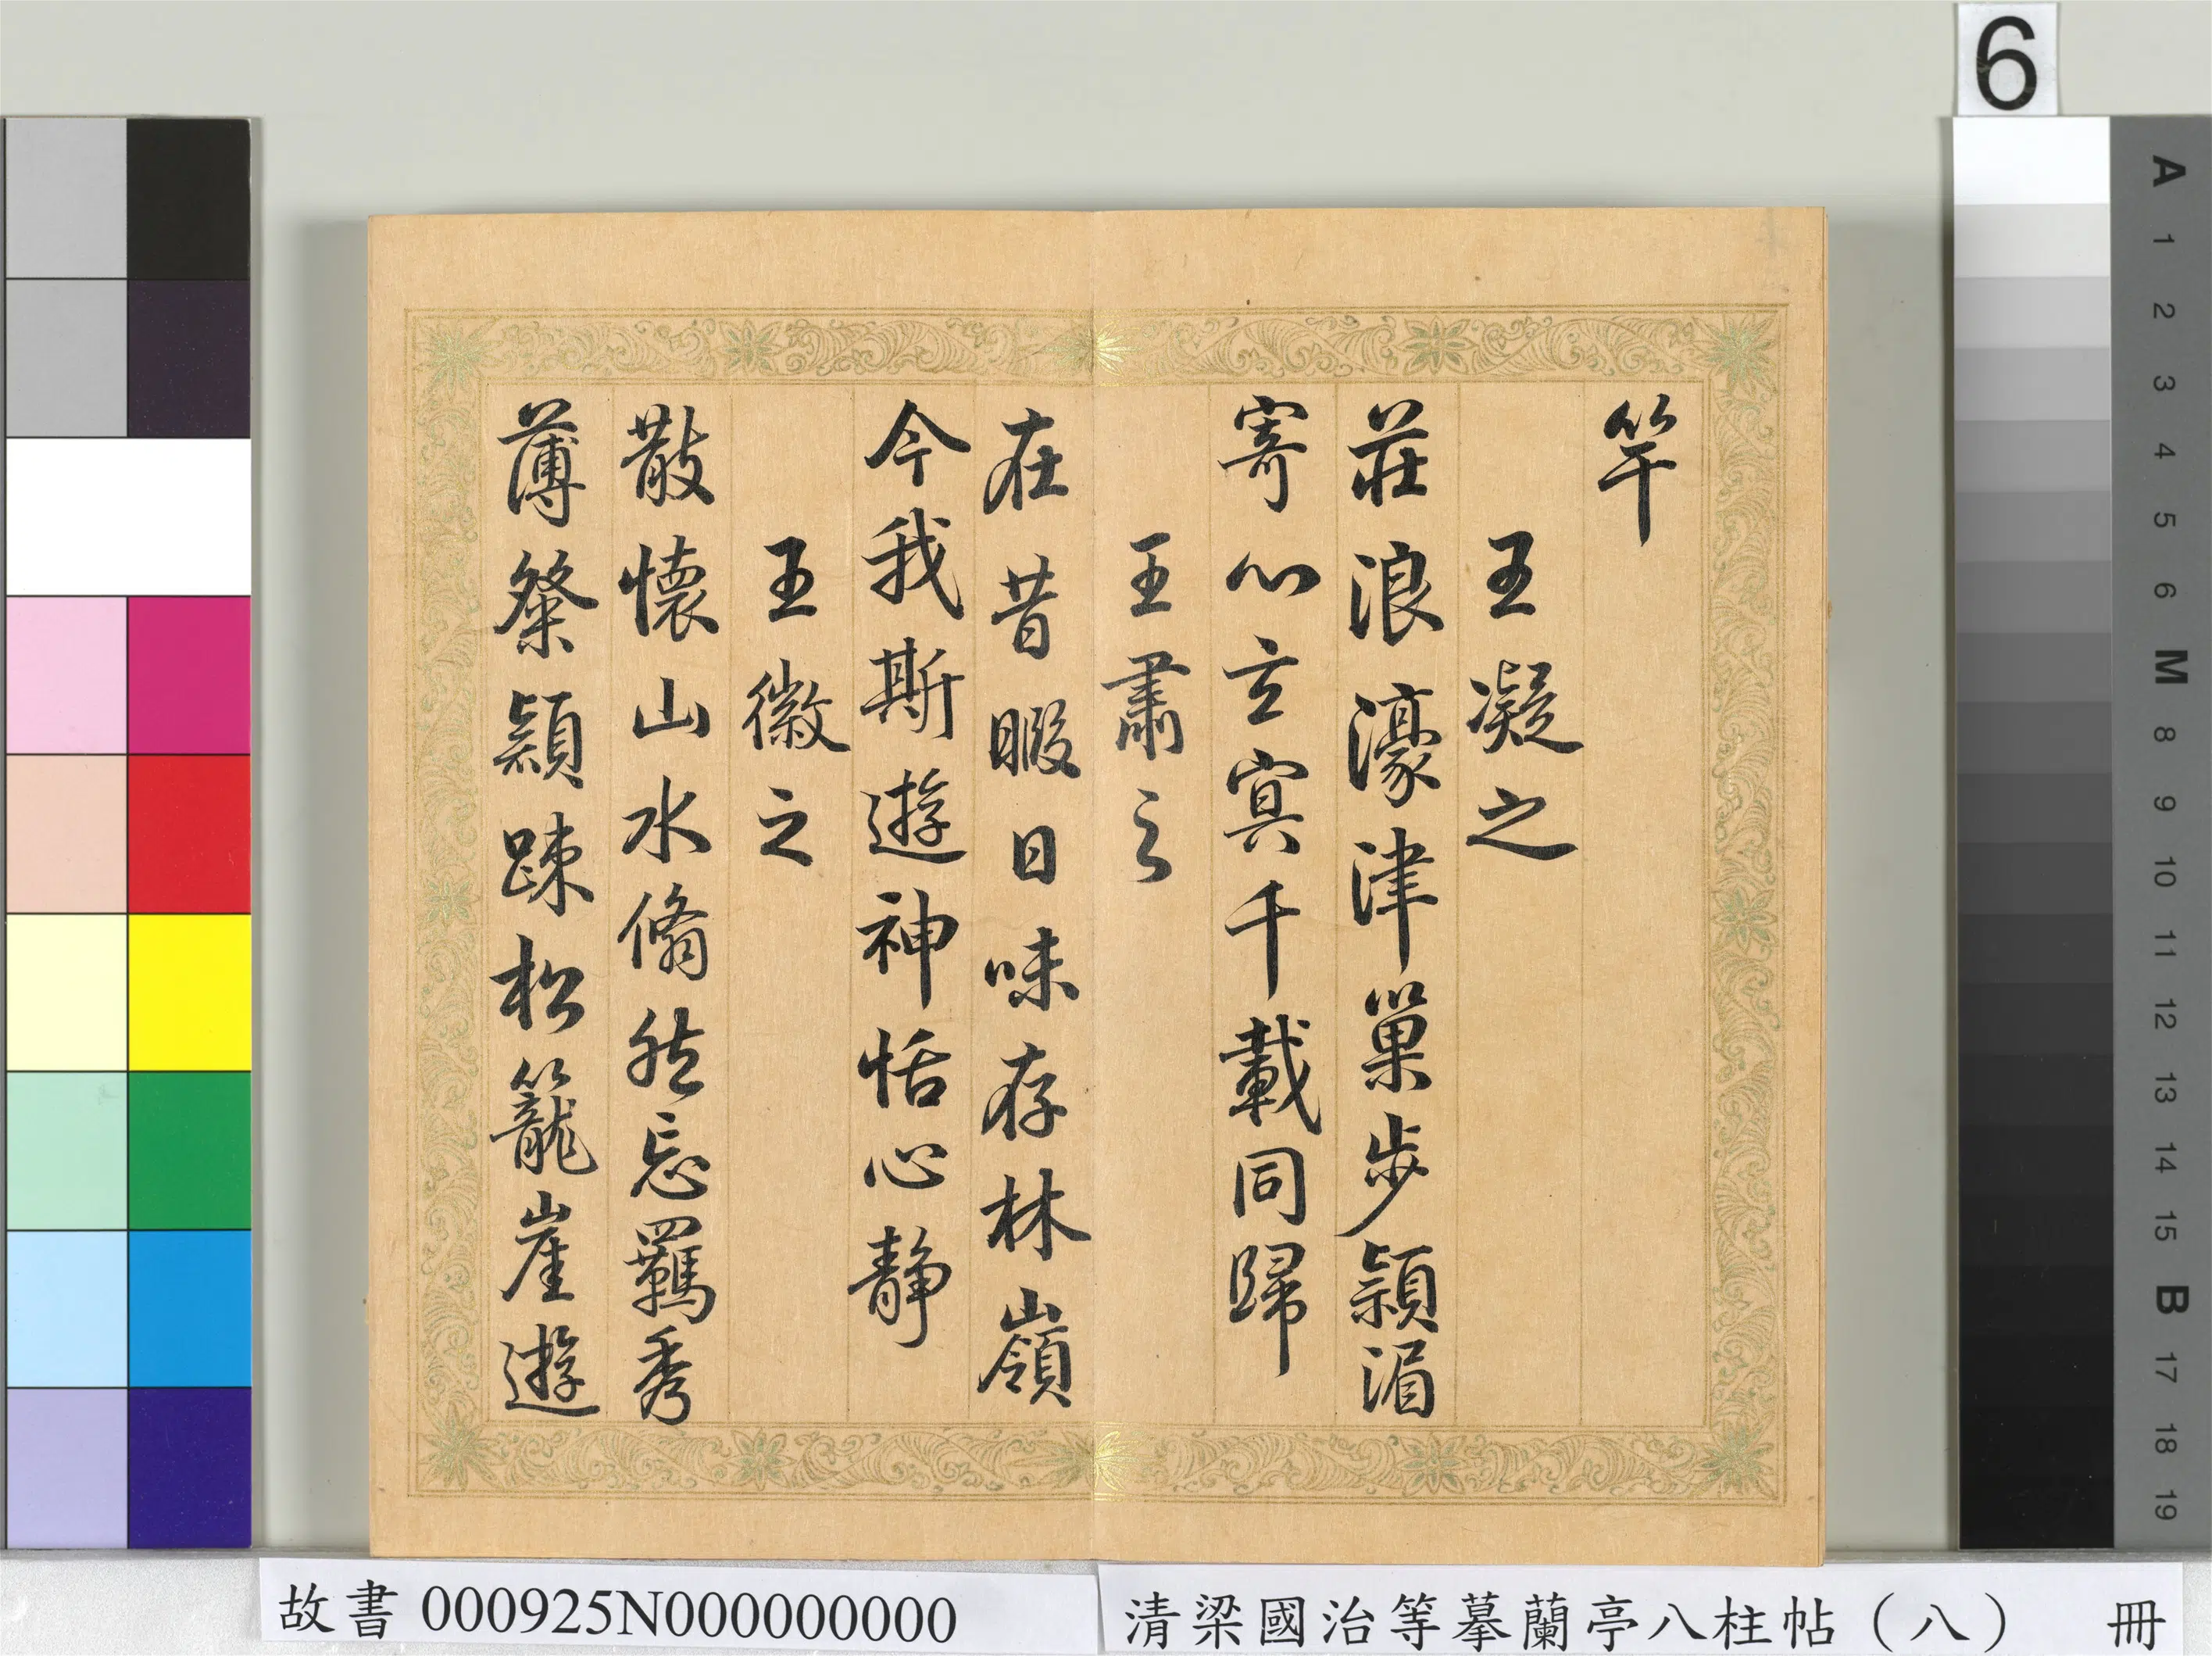 6
竿
王凝之
莊浪濠津巢步潁湄
寄心玄冥千載同歸
王肅之
在昔暇日味存林嶺
今我斯遊神恬心静
王徽之
散懷山水翛然忘羈秀
薄粲穎踈松籠崖遊
A 1 2 3 4 5 6 M 8 9 10 11 12 13 14 15 B 17 18 19
故書 000925N000000000
清梁國治等摹蘭亭八柱帖（八） 冊